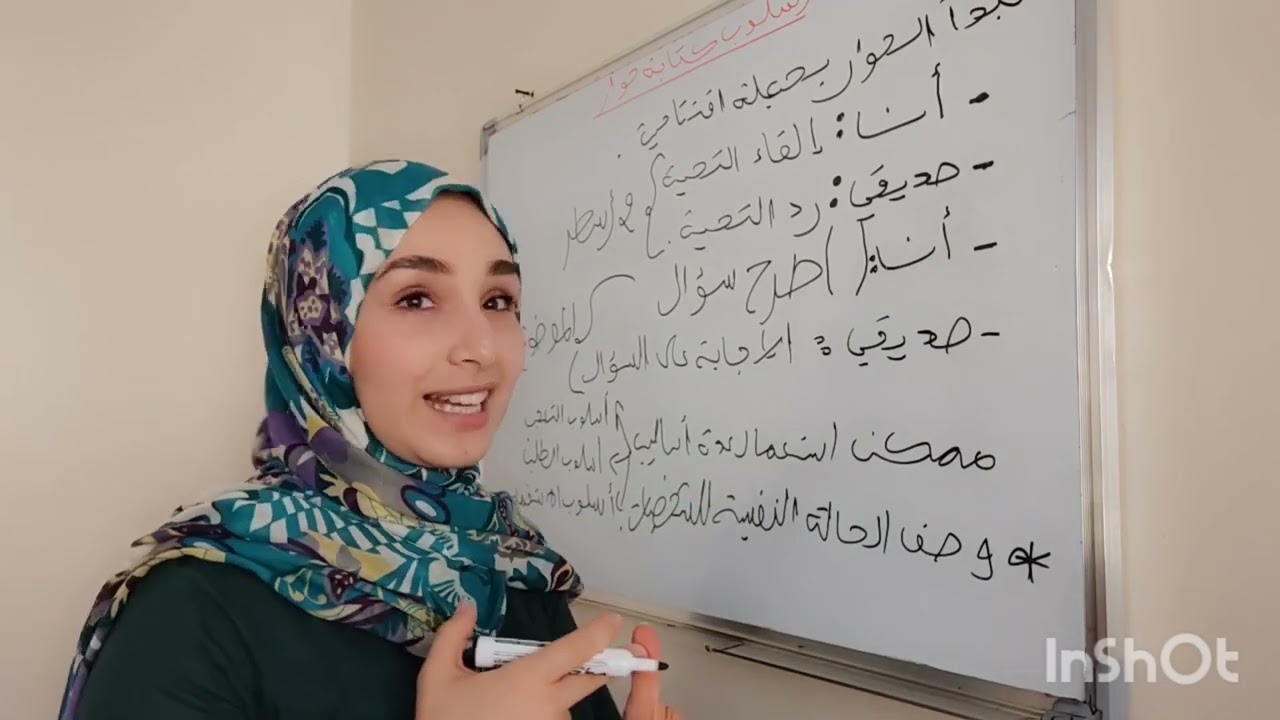 أسلوب كتابة حوار
نبدأ الحوار بجملة افتتاحية.
- أنا: إلقاء التحية
- صديقي: رد التحية.
في أسطر
- أنا: ( أطرح سؤال
- صديقي: الإجابة على السؤال)
الموضوع
ممكن استعمال عدة أساليب
أسلوب التعجب
أسلوب الطلب
أسلوب الاستفهام
* وصف الحالة النفسية للشخصيات.
InShOt